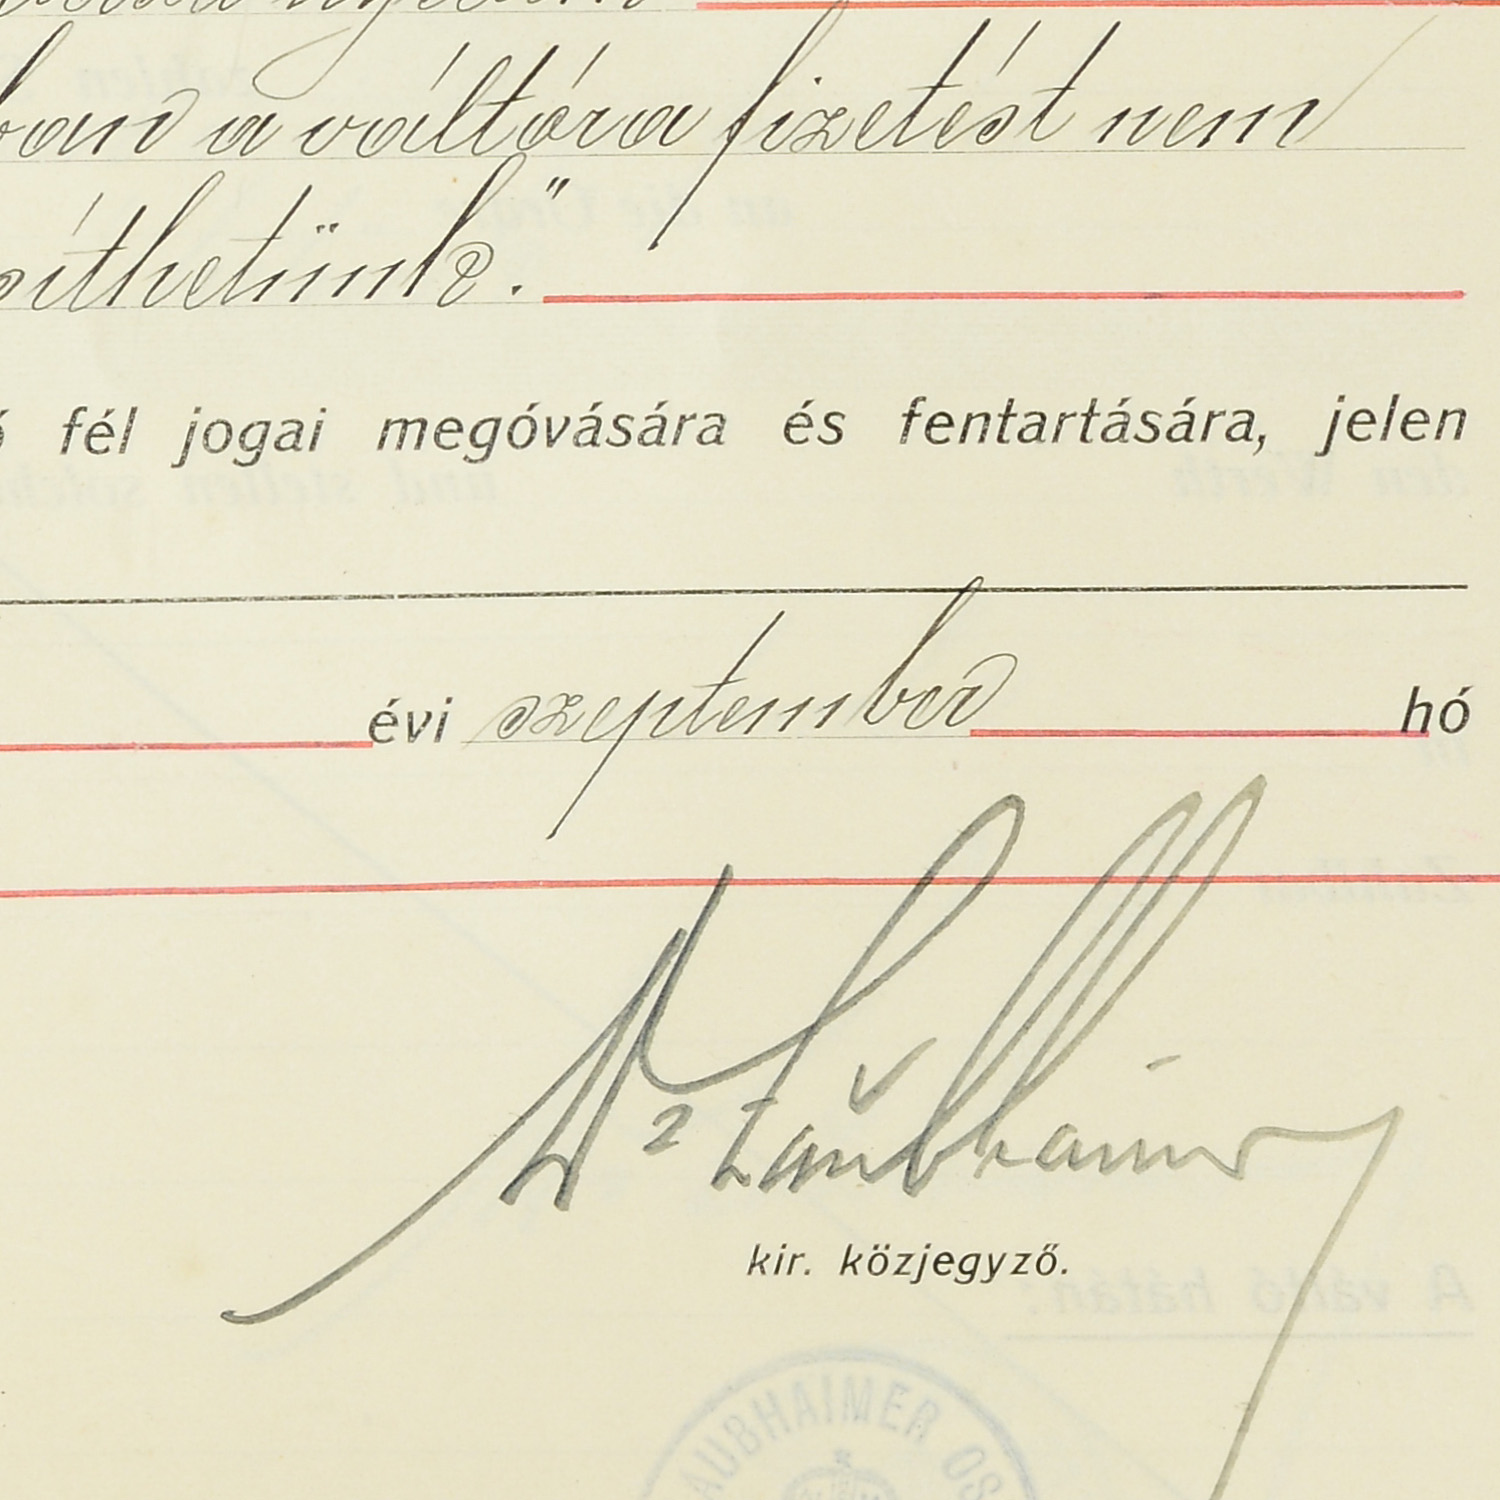 ban a váltóra fizetést nem
síthetünk."
fél jogai megóvására és fentartására, jelen
évi szeptember hó
Dr Laubhaimer
kir. közjegyző.
A váltó hátán:
AUBHAIMER OS